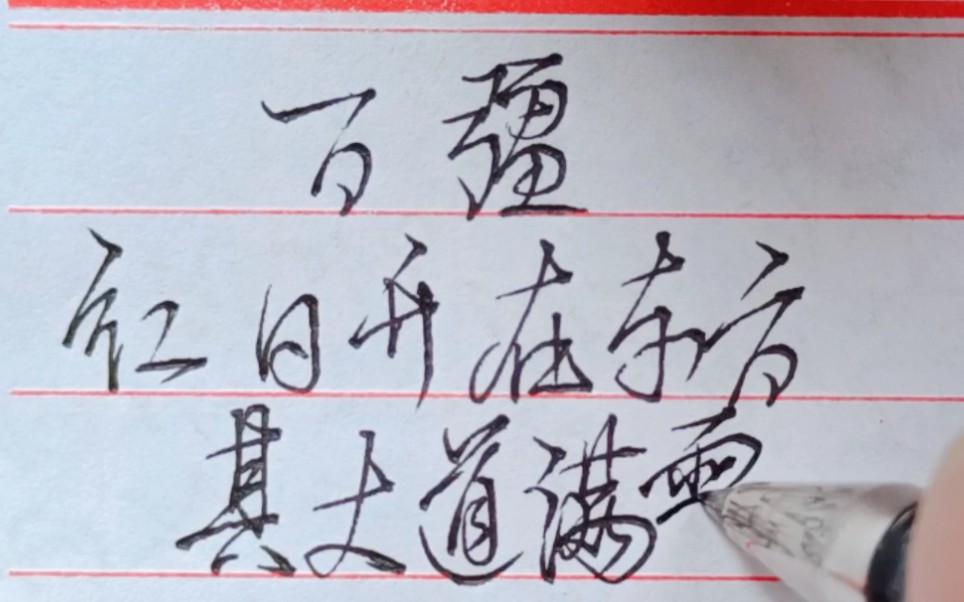 万疆
红日升在东方
其大道满